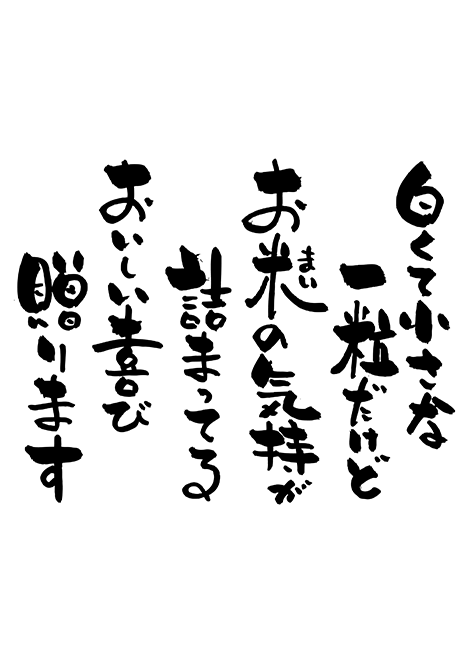 白くて小さな
一粒だけど
お米の気持が
まい
詰まってる
おいしい喜び
贈ります